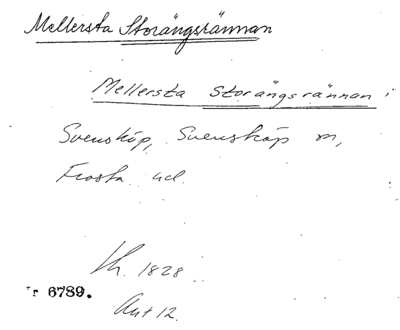 Mellersta Storängsrännan
Mellersta Storängsrännan i
Svensköp, Svensköp sn,
Frosta hd
1828
Nr 6789.
Akt 12.